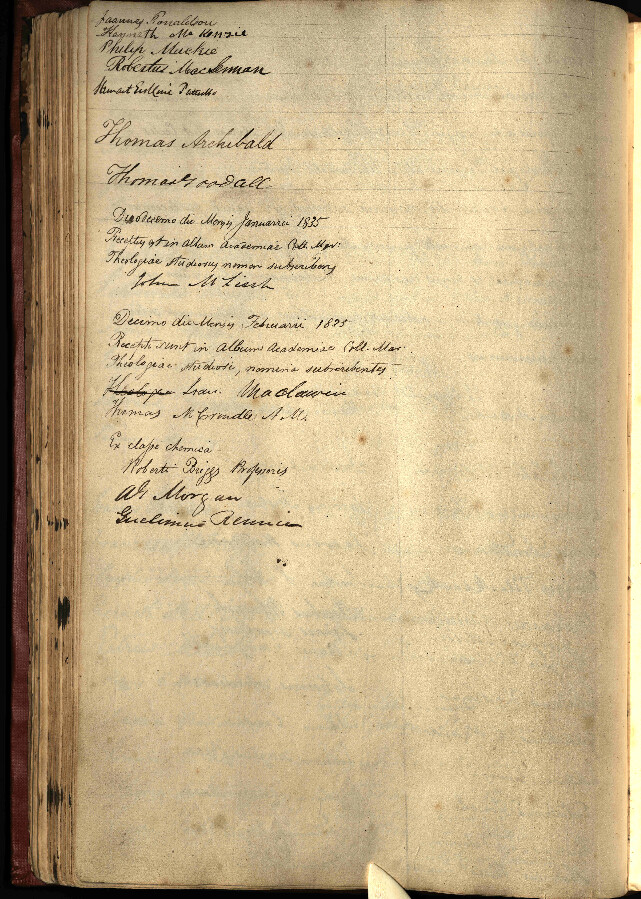 Joannes Ronaldson
Kenneth Mc Kenzie
Philip Mackie
Robertus MacLennan
Stewart
Thomas Archibald
Thomas Goodall
Duodecimo die Mensis Januarii 1835
Receptus est in album Academiae Coll. Mar:
Theologiae studiosus nomen subscribens
John M
Decimo die Mensis Februarii 1835
Recepti sunt in album Academiae Coll. Mar.
Theologiae studiosi, nomina subscribentes
Maclaurin
Thomas A.M.
Ex classe chemica
Roberti Briggs Professoris
Morgan
Gulielmus Rennie